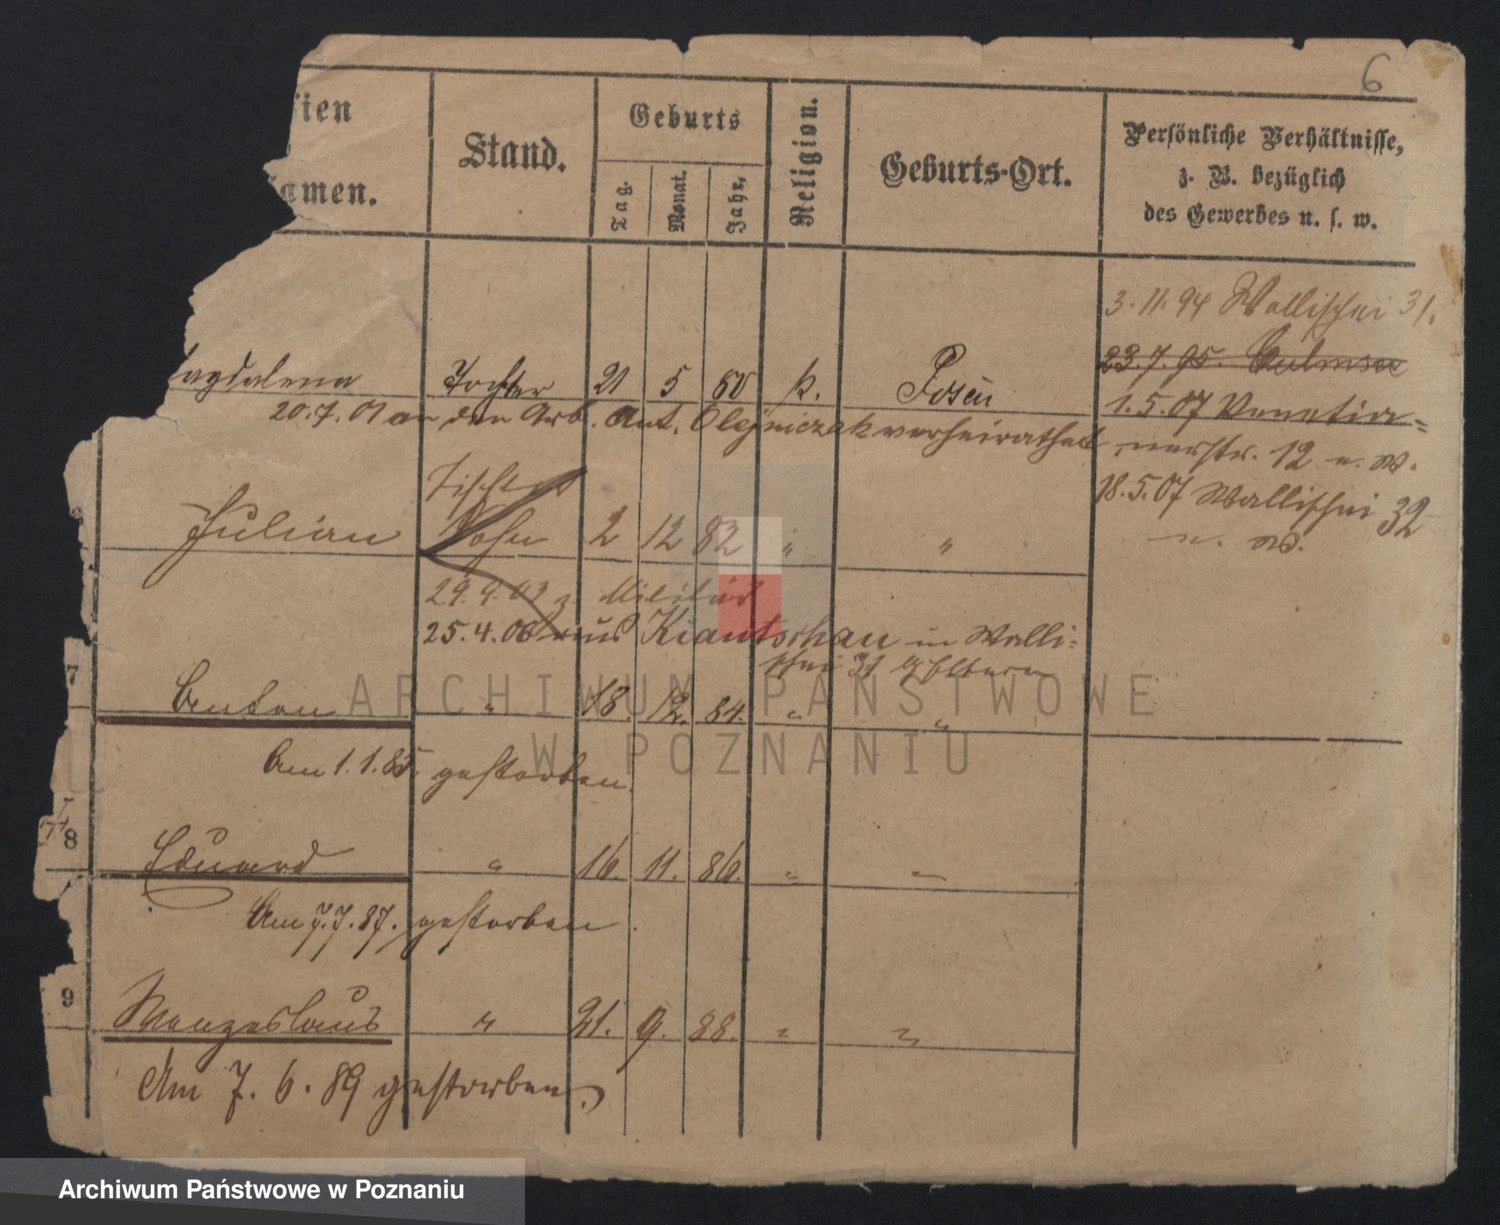 6
ilien
Namen.
Stand.
Geburts
Tag.
Monat.
Jahr.
Religion.
Geburts-Ort.
Persönliche Verhältnisse,
z. B. bezüglich
des Gewerbes u. s. w.
3. 11. 94 Wallischei 31.
23. 7. 95. Culmsee
agdalena Tochter 21 5 80 k. Posen
1. 5. 07 Venetia=
20. 7. 01 an den Arb. Ant. Olejniczak verheirathet
nerstr. 12 u. W.
18. 5. 07 Wallischei 32
u. W.
Tischler
Julian Sohn 2 12 82 " "
29. 9. 02 z. Militär
25. 4. 06 aus Kiautschau in Walli=
schei 31 Eltern
7 Anton " 18. 12. 84. " "
Am 1. 1. 85. gestorben.
8 Eduard " 16. 11. 86. " "
Am 7. 7. 87. gestorben.
9 Wenzeslaus " 21. 9. 88. " "
Am 7. 6. 89 gestorben.
ARCHIWUM PAŃSTWOWE
W POZNANIU
Archiwum Państwowe w Poznaniu